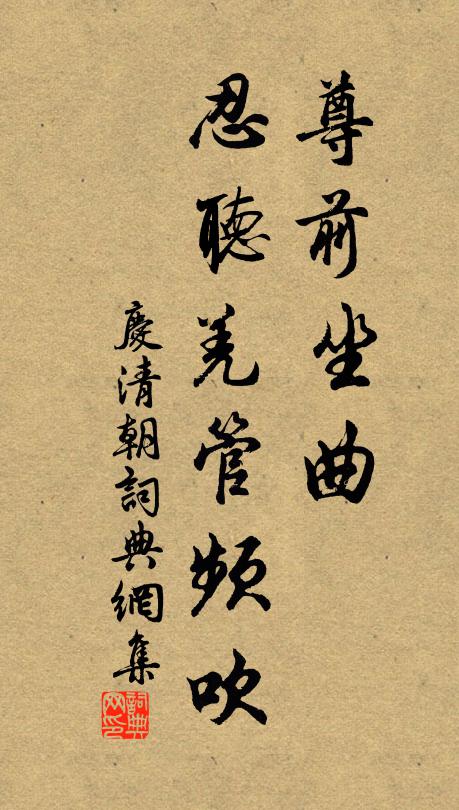 尊前坐曲
忍聽羌管頻吹
慶清朝詞典網集
詞典网印